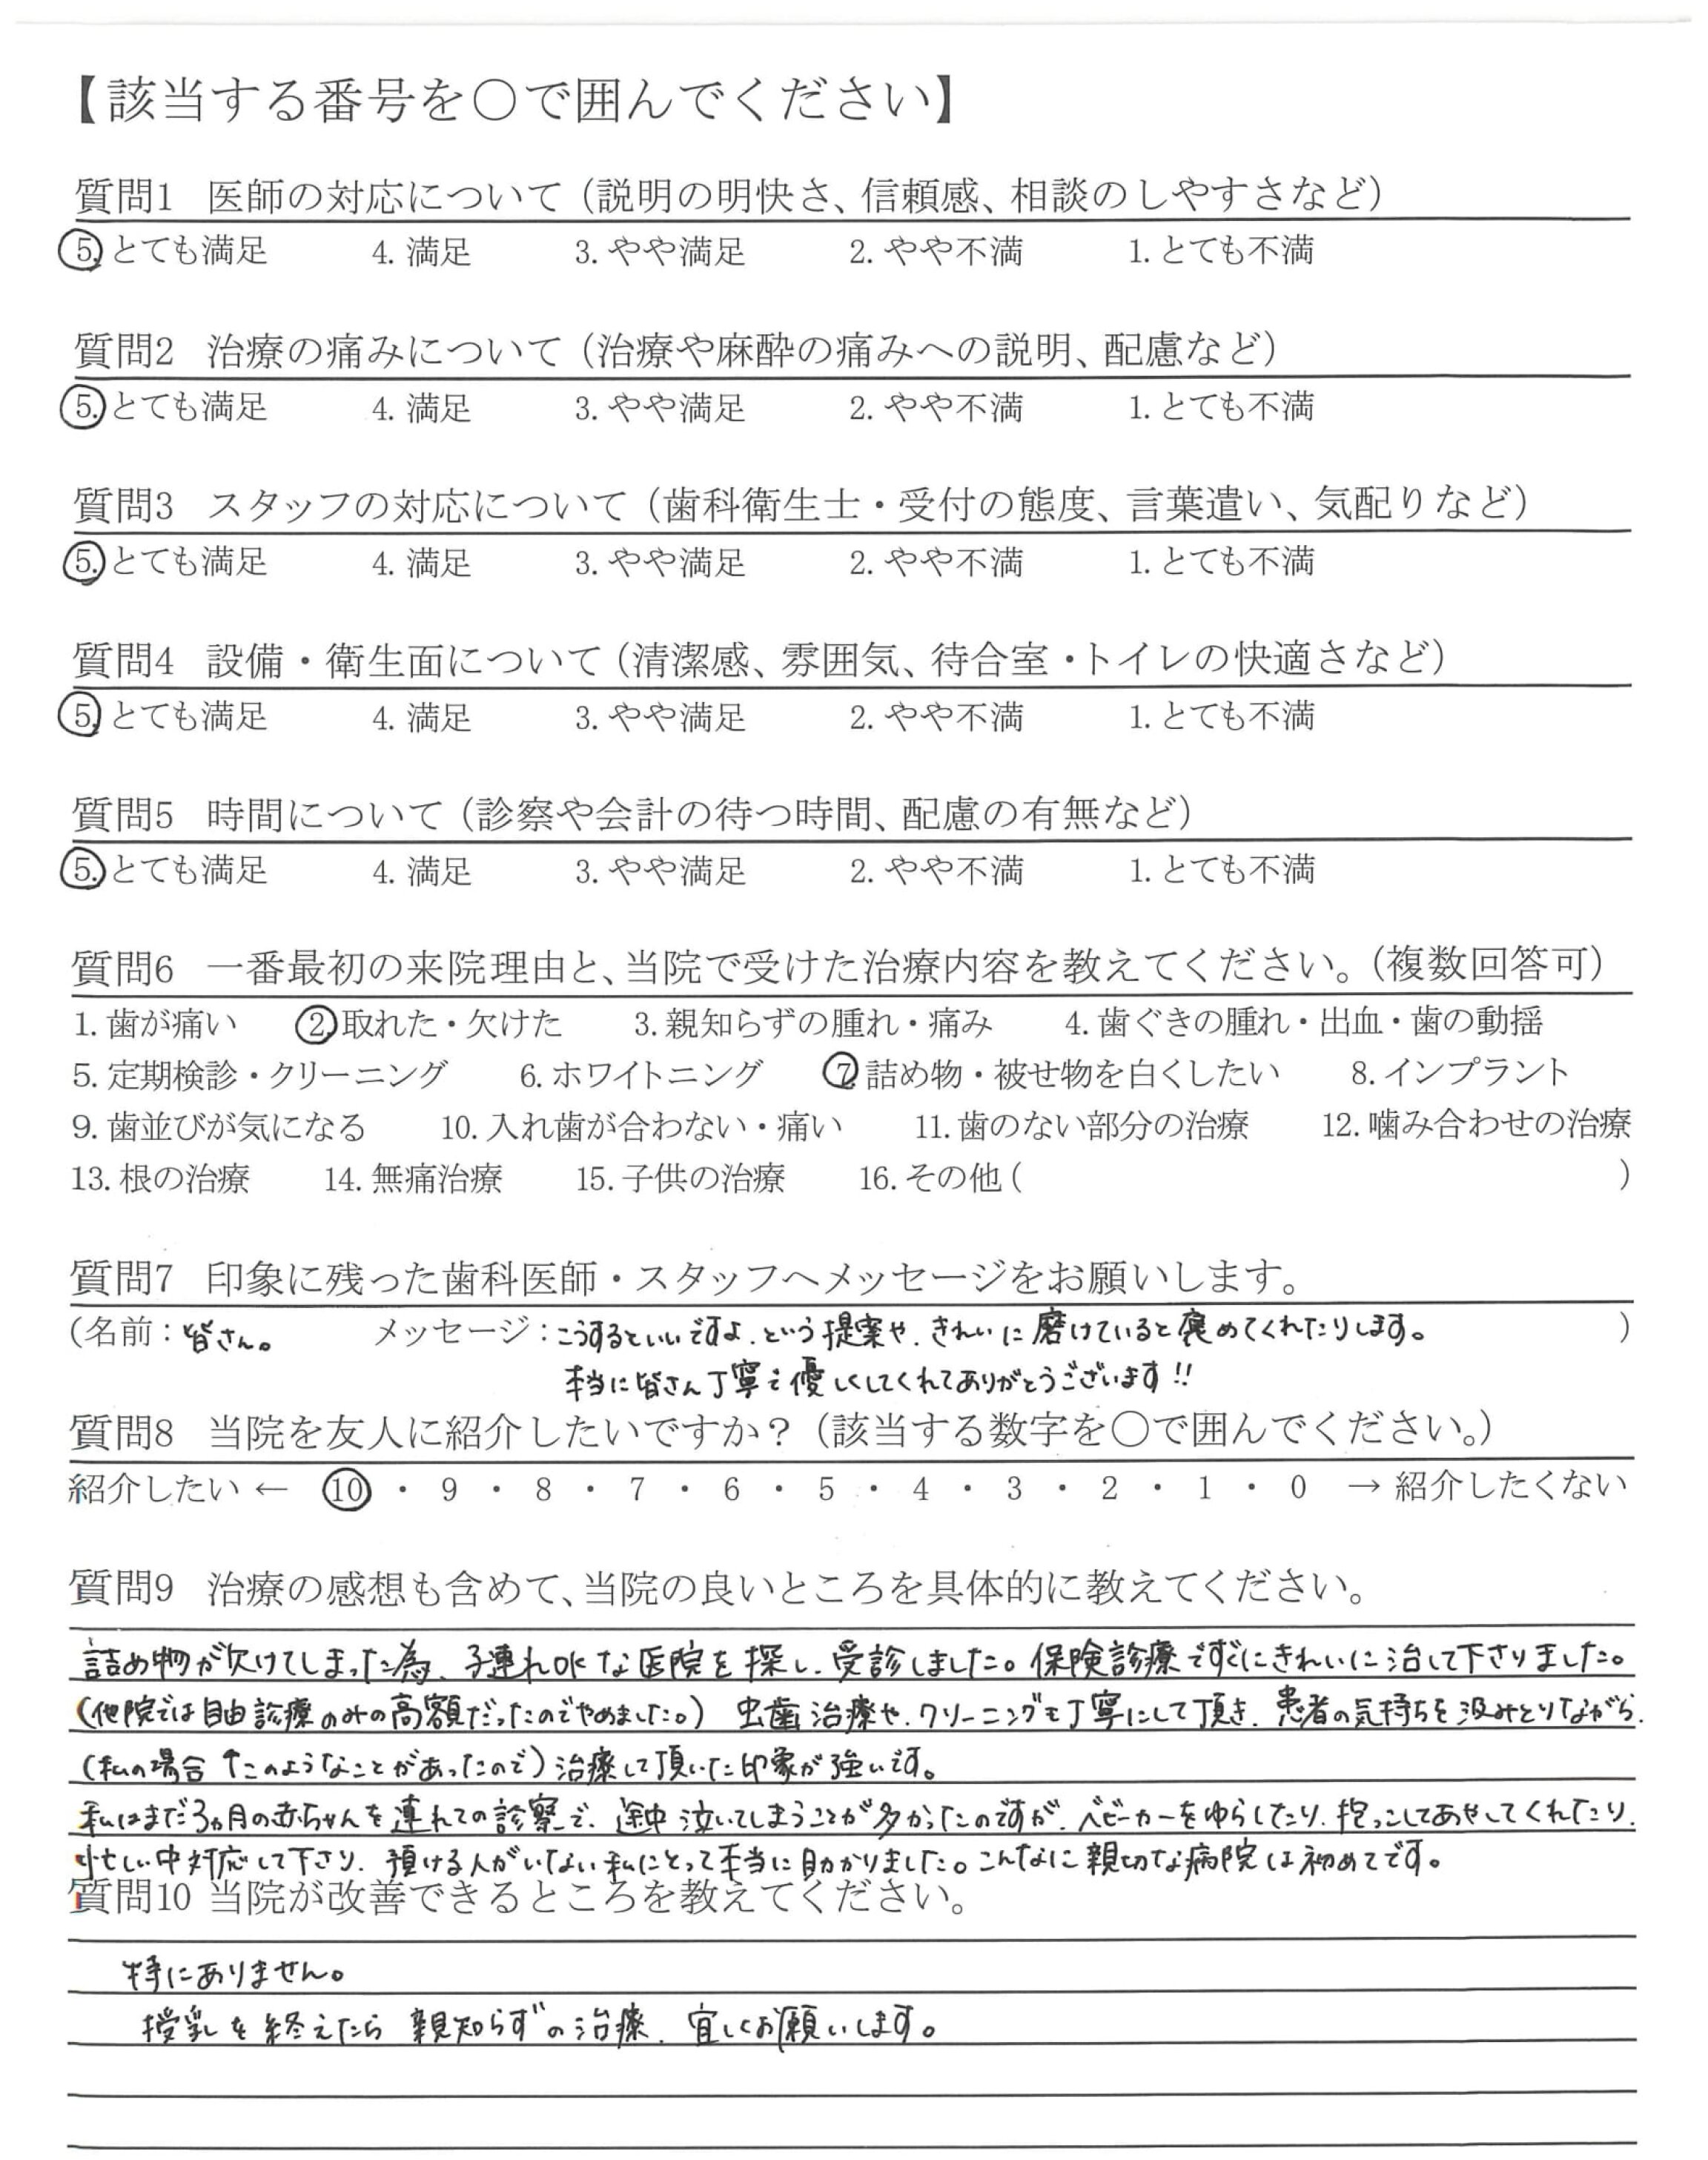 【該当する番号を○で囲んでください】
質問1 医師の対応について（説明の明快さ、信頼感、相談のしやすさなど）
5. とても満足 4. 満足 3. やや満足 2. やや不満 1. とても不満
質問2 治療の痛みについて（治療や麻酔の痛みへの説明、配慮など）
5. とても満足 4. 満足 3. やや満足 2. やや不満 1. とても不満
質問3 スタッフの対応について（歯科衛生士・受付の態度、言葉遣い、気配りなど）
5. とても満足 4. 満足 3. やや満足 2. やや不満 1. とても不満
質問4 設備・衛生面について（清潔感、雰囲気、待合室・トイレの快適さなど）
5. とても満足 4. 満足 3. やや満足 2. やや不満 1. とても不満
質問5 時間について（診察や会計の待つ時間、配慮の有無など）
5. とても満足 4. 満足 3. やや満足 2. やや不満 1. とても不満
質問6 一番最初の来院理由と、当院で受けた治療内容を教えてください。（複数回答可）
1. 歯が痛い 2. 取れた・欠けた 3. 親知らずの腫れ・痛み 4. 歯ぐきの腫れ・出血・歯の動揺
5. 定期検診・クリーニング 6. ホワイトニング 7. 詰め物・被せ物を白くしたい 8. インプラント
9. 歯並びが気になる 10. 入れ歯が合わない・痛い 11. 歯のない部分の治療 12. 噛み合わせの治療
13. 根の治療 14. 無痛治療 15. 子供の治療 16. その他（ ）
質問7 印象に残った歯科医師・スタッフへメッセージをお願いします。
（名前：皆さん。 メッセージ：こうするといいですよ、という提案や、きれいに磨けていると褒めてくれたりします。 ）
本当に皆さん丁寧で優しくしてくれてありがとうございます!!
質問8 当院を友人に紹介したいですか？（該当する数字を○で囲んでください。）
紹介したい ← 10 ・ 9 ・ 8 ・ 7 ・ 6 ・ 5 ・ 4 ・ 3 ・ 2 ・ 1 ・ 0 → 紹介したくない
質問9 治療の感想も含めて、当院の良いところを具体的に教えてください。
詰め物が欠けてしまった為、子連れOKな医院を探し、受診しました。保険診療ですぐにきれいに治して下さりました。
（他院では自由診療のみの高額だったのでやめました。） 虫歯治療や、クリーニングも丁寧にして頂き、患者の気持ちを汲みとりながら、
（私の場合↑このようなことがあったので）治療して頂いた印象が強いです。
私はまだ3ヵ月の赤ちゃんを連れての診察で、途中泣いてしまうことが多かったのですが、ベビーカーをゆらしたり、抱っこしてあやしてくれたり、
忙しい中対応して下さり、預ける人がいない私にとって本当に助かりました。こんなに親切な病院は初めてです。
質問10 当院が改善できるところを教えてください。
特にありません。
授乳を終えたら親知らずの治療、宜しくお願いします。